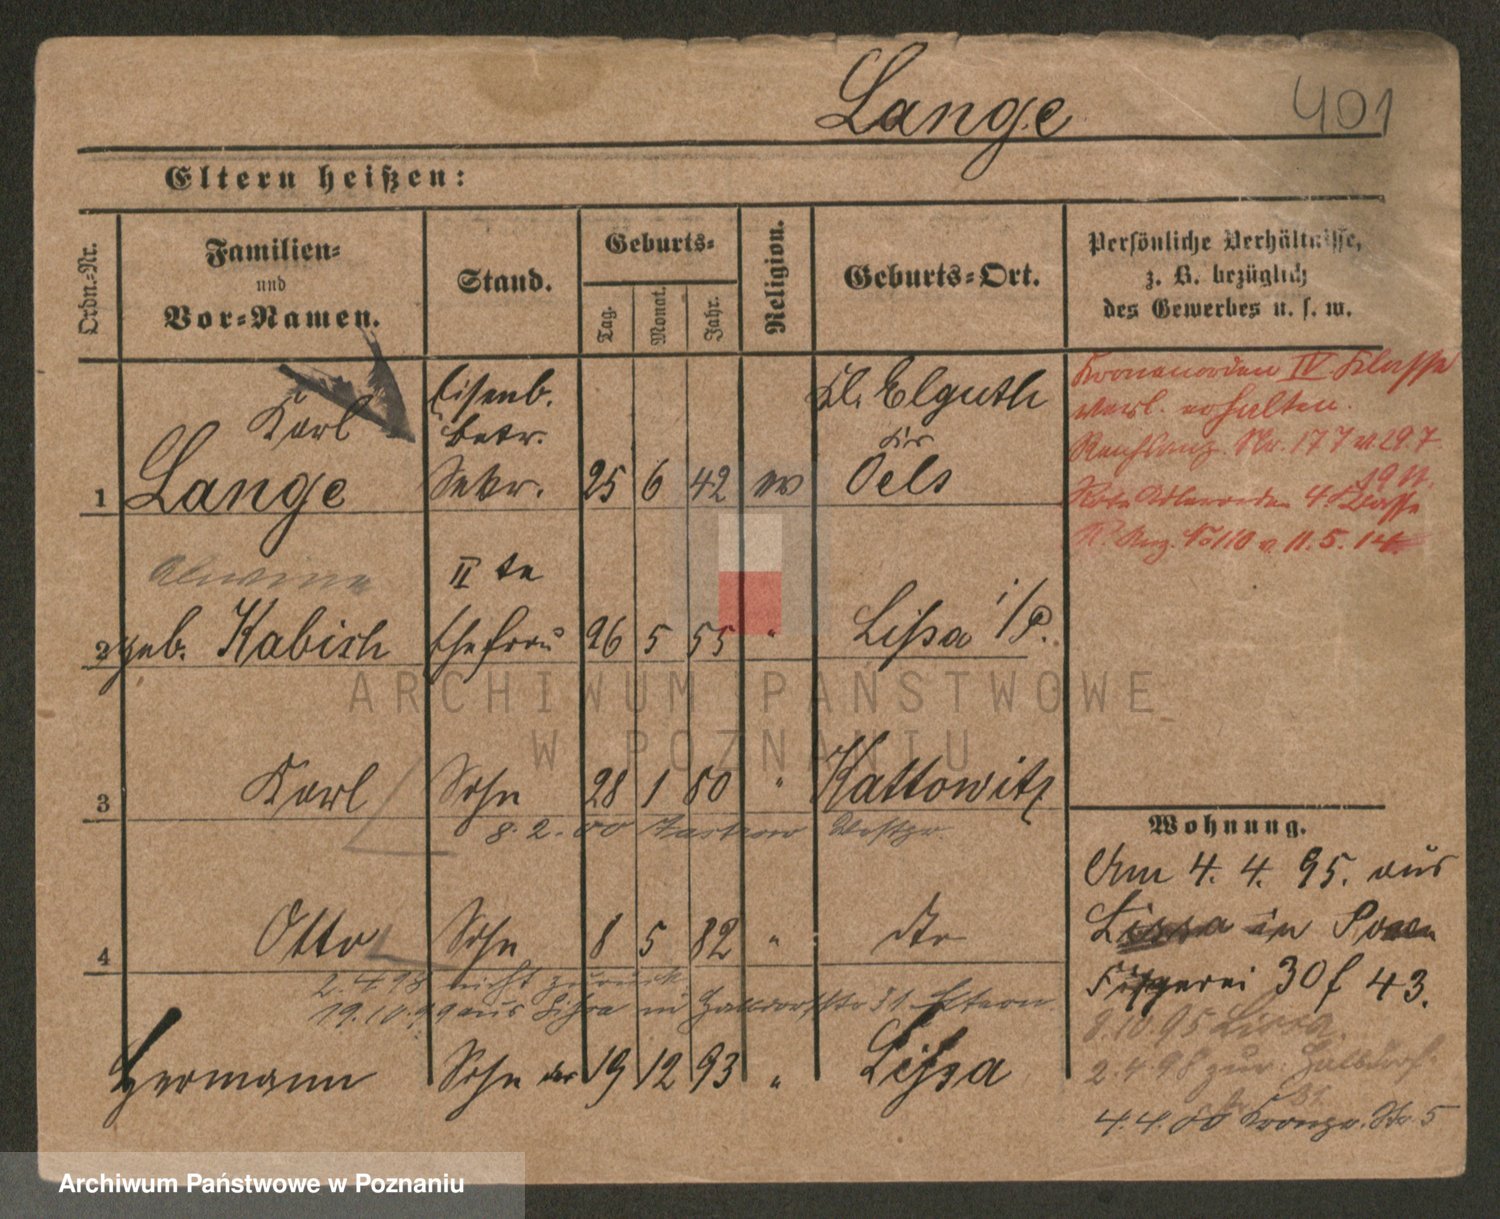 Lange
401
Eltern heißen:
Ordn.-Nr.
Familien-
und
Vor-Namen.
Stand.
Geburts-
Tag.
Monat.
Jahr.
Religion.
Geburts-Ort.
Persönliche Verhältnisse,
z. B. bezüglich
des Gewerbes u. s. w.
Karl
Eisenb.
betr.
Kl. Elguth
1 Lange Sekr. 25 6 42 ev Oels
Kronenorden IV Klasse
verl. erhalten.
Nr. 177 v. 29.7
1911.
Rote Adlerorden 4. Klasse
R. Anz. No 110 v. 11.5.14
Alwine II te
2 geb. Kabisch Ehefrau 26 5 55 " Lißa i/P.
ARCHIWUM PAŃSTWOWE
W POZNANIU
3 Karl Sohn 28 1 80 " Kattowitz
8.2.00 Westpr.
4 Otto Sohn 8 5 82 " dto
2.4.98 nicht zurück
19.10.99 aus Lissa in 31 Eltern
Hermann Sohn 19 12 93 " Lißa
Wohnung.
Am 4. 4. 95. aus
Lissa in Posen
30 f 43.
2.10.95 Lissa
2.4.98 zur.
4.4.00 Kronpr. Str. 5
Archiwum Państwowe w Poznaniu